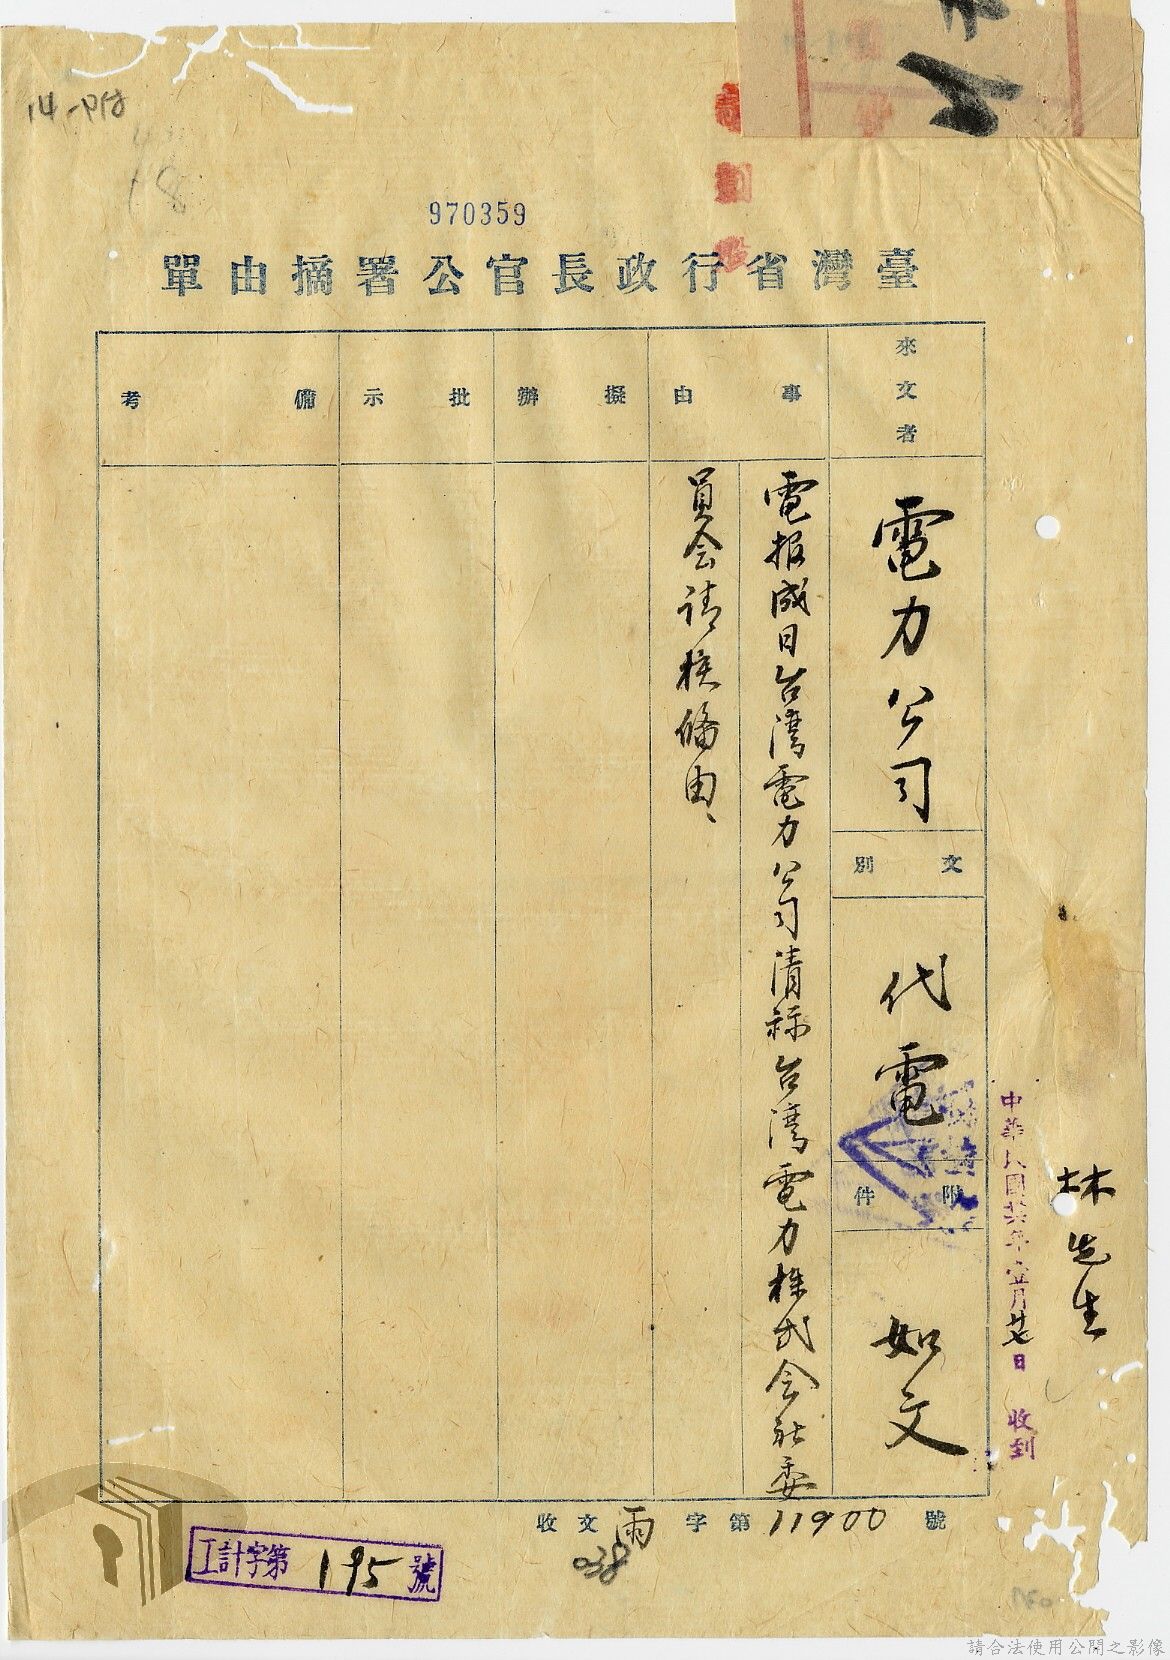 14-P18
18
970359
臺灣省行政長官公署摘由單
來文者
電力公司
文別
代電
附件
如文
事由
電报成日台湾電力公司清称台湾電力株式会社委
員会请核俻由、
擬辦
批示
備考
收文雨字第11900號
038
工計字第195號
中華民國卅六年壹月廿七日收到
林先生
劃
請合法使用公開之影像